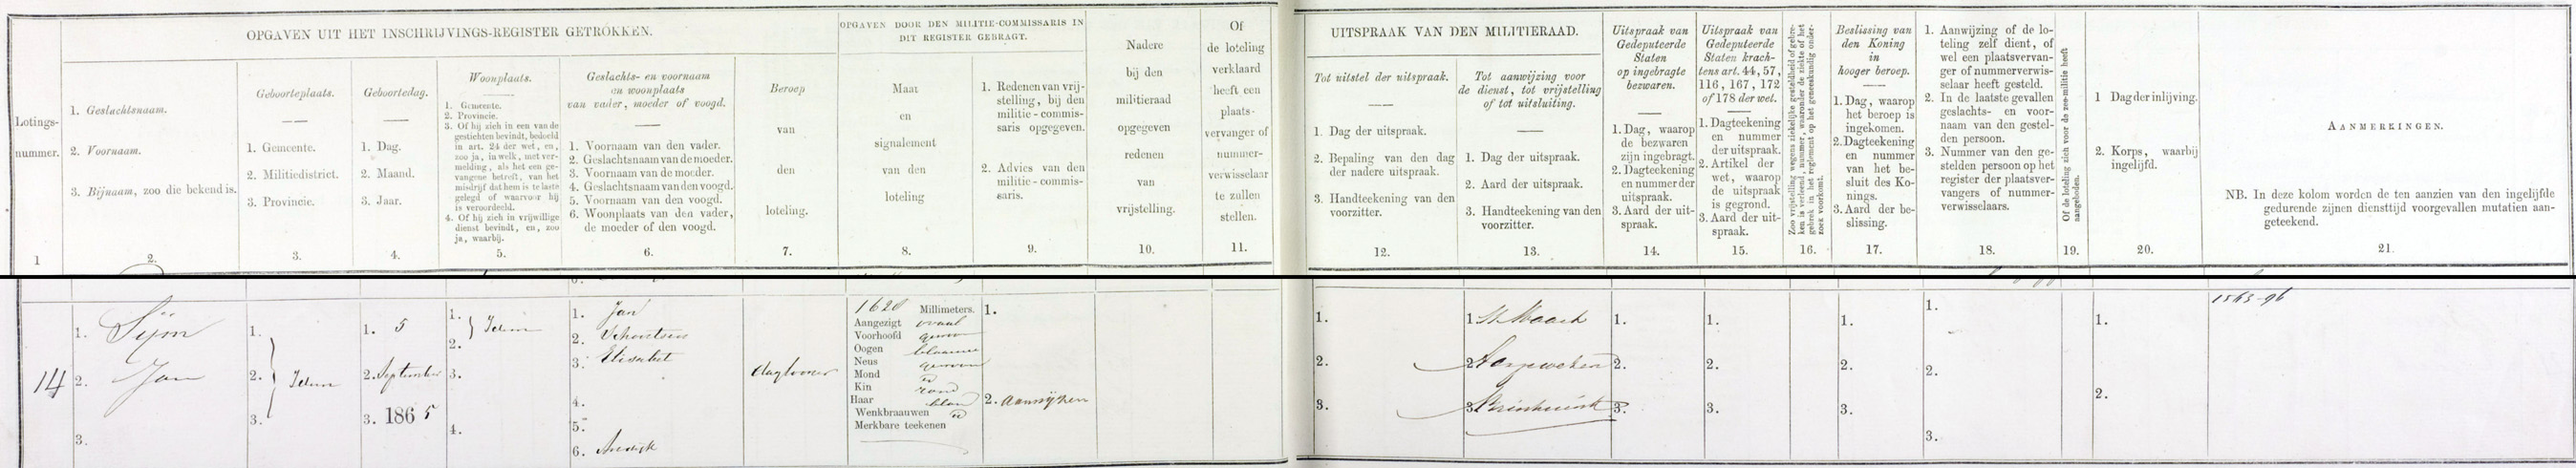 OPGAVEN UIT HET INSCHRIJVINGS-REGISTER GETROKKEN.
OPGAVEN DOOR DEN MILITIE-COMMISSARIS IN
DIT REGISTER GEBRAGT.
Lotings-
nummer.
1
1. Geslachtsnaam.
2. Voornaam.
3. Bijnaam, zoo die bekend is.
2.
Geboorteplaats.
1. Gemeente.
2. Militiedistrict.
3. Provincie.
3.
Geboortedag.
1. Dag.
2. Maand.
3. Jaar.
4.
Woonplaats.
1. Gemeente.
2. Provincie.
3. Of hij zich in een van de
gestichten bevindt, bedoeld
in art. 24 der wet, en,
zoo ja, in welk, met ver-
melding, als het een ge-
vangene betreft, van het
misdrijf dat hem is te laste
gelegd of waarvoor hij
is veroordeeld.
4. Of hij zich in vrijwillige
dienst bevindt, en, zoo
ja, waarbij.
5.
Geslachts- en voornaam
en woonplaats
van vader, moeder of voogd.
1. Voornaam van den vader.
2. Geslachtsnaam van de moeder.
3. Voornaam van de moeder.
4. Geslachtsnaam van den voogd.
5. Voornaam van den voogd.
6. Woonplaats van den vader,
de moeder of den voogd.
6.
Beroep
van
den
loteling.
7.
Maat
en
signalement
van den
loteling
8.
1. Redenen van vrij-
stelling, bij den
militie-commis-
saris opgegeven.
2. Advies van den
militie-commis-
saris.
9.
Nadere
bij den
militieraad
opgegeven
redenen
van
vrijstelling.
10.
Of
de loteling
verklaard
heeft een
plaats-
vervanger of
nummer-
verwisselaar
te zullen
stellen.
11.
UITSPRAAK VAN DEN MILITIERAAD.
Tot uitstel der uitspraak.
1. Dag der uitspraak.
2. Bepaling van den dag
der nadere uitspraak.
3. Handteekening van den
voorzitter.
12.
Tot aanwijzing voor
de dienst, tot vrijstelling
of tot uitsluiting.
1. Dag der uitspraak.
2. Aard der uitspraak.
3. Handteekening van den
voorzitter.
13.
Uitspraak van
Gedeputeerde
Staten
op ingebragte
bezwaren.
1. Dag, waarop
de bezwaren
zijn ingebragt.
2. Dagteekening
en nummer der
uitspraak.
3. Aard der uit-
spraak.
14.
Uitspraak van
Gedeputeerde
Staten krach-
tens art. 44, 57,
116, 167, 172
of 178 der wet.
1. Dagteekening
en nummer
der uitspraak.
2. Artikel der
wet, waarop
de uitspraak
is gegrond.
3. Aard der uit-
spraak.
15.
Zoo vrijstelling wegens ziekelijke gesteldheid of gebre-
ken is verleend, nummer, waaronder de ziekte of het
gebrek in het reglement op het geneeskundig onder-
zoek voorkomt.
16.
Beslissing van
den Koning
in
hooger beroep.
1. Dag, waarop
het beroep is
ingekomen.
2. Dagteekening
en nummer
van het be-
sluit des Ko-
nings.
3. Aard der be-
slissing.
17.
1. Aanwijzing of de lo-
teling zelf dient, of
wel een plaatsvervan-
ger of nummerverwis-
selaar heeft gesteld.
2. In de laatste gevallen
geslachts- en voor-
naam van den gestel-
den persoon.
3. Nummer van den ge-
stelden persoon op het
register der plaatsver-
vangers of nummer-
verwisselaars.
18.
Of de loteling zich voor de zee-militie heeft
aangeboden.
19.
1 Dag der inlijving.
2. Korps, waarbij
ingelijfd.
20.
AANMERKINGEN.
NB. In deze kolom worden de ten aanzien van den ingelijfde
gedurende zijnen diensttijd voorgevallen mutatien aan-
geteekend.
21.
14
1. Sijm
2. Jan
3.
1.
2. Idem
3.
1. 5
2. September
3. 1865
1. Idem
2.
3.
4.
1. Jan
2. Schoutsen
3. Elisabet
4.
5.
6. Andijk
daglooner
1620 Millimeters.
Aangezigt ovaal
Voorhoofd gewoon
Oogen blaauw
Neus gewoon
Mond id
Kin rond
Haar blond
Wenkbraauwen id
Merkbare teekenen
1.
2. Aanwijzen
1.
2.
3.
1 Maart
2 Aangewezen
3
1.
2.
3.
1.
2.
3.
1.
2.
3.
1.
2.
3.
1.
2.
1563-96